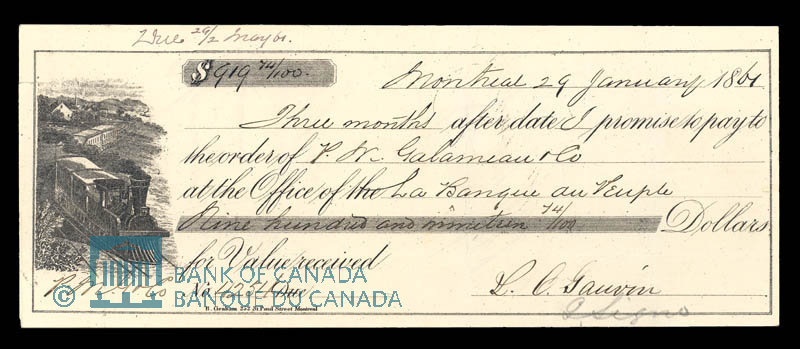 Due 29/2 May 61.
$919 74/100.
Montreal 29 January 1861
Three months after date I promise to pay to
the order of P. W. Galarneau & Co
at the Office of the La Banque du Peuple
Nine hundred and nineteen 74/100 Dollars
for Value received
BANK OF CANADA
No Due
L. C. Gauvin
© BANQUE DU CANADA
B. Graham 252 St Paul Street Montreal